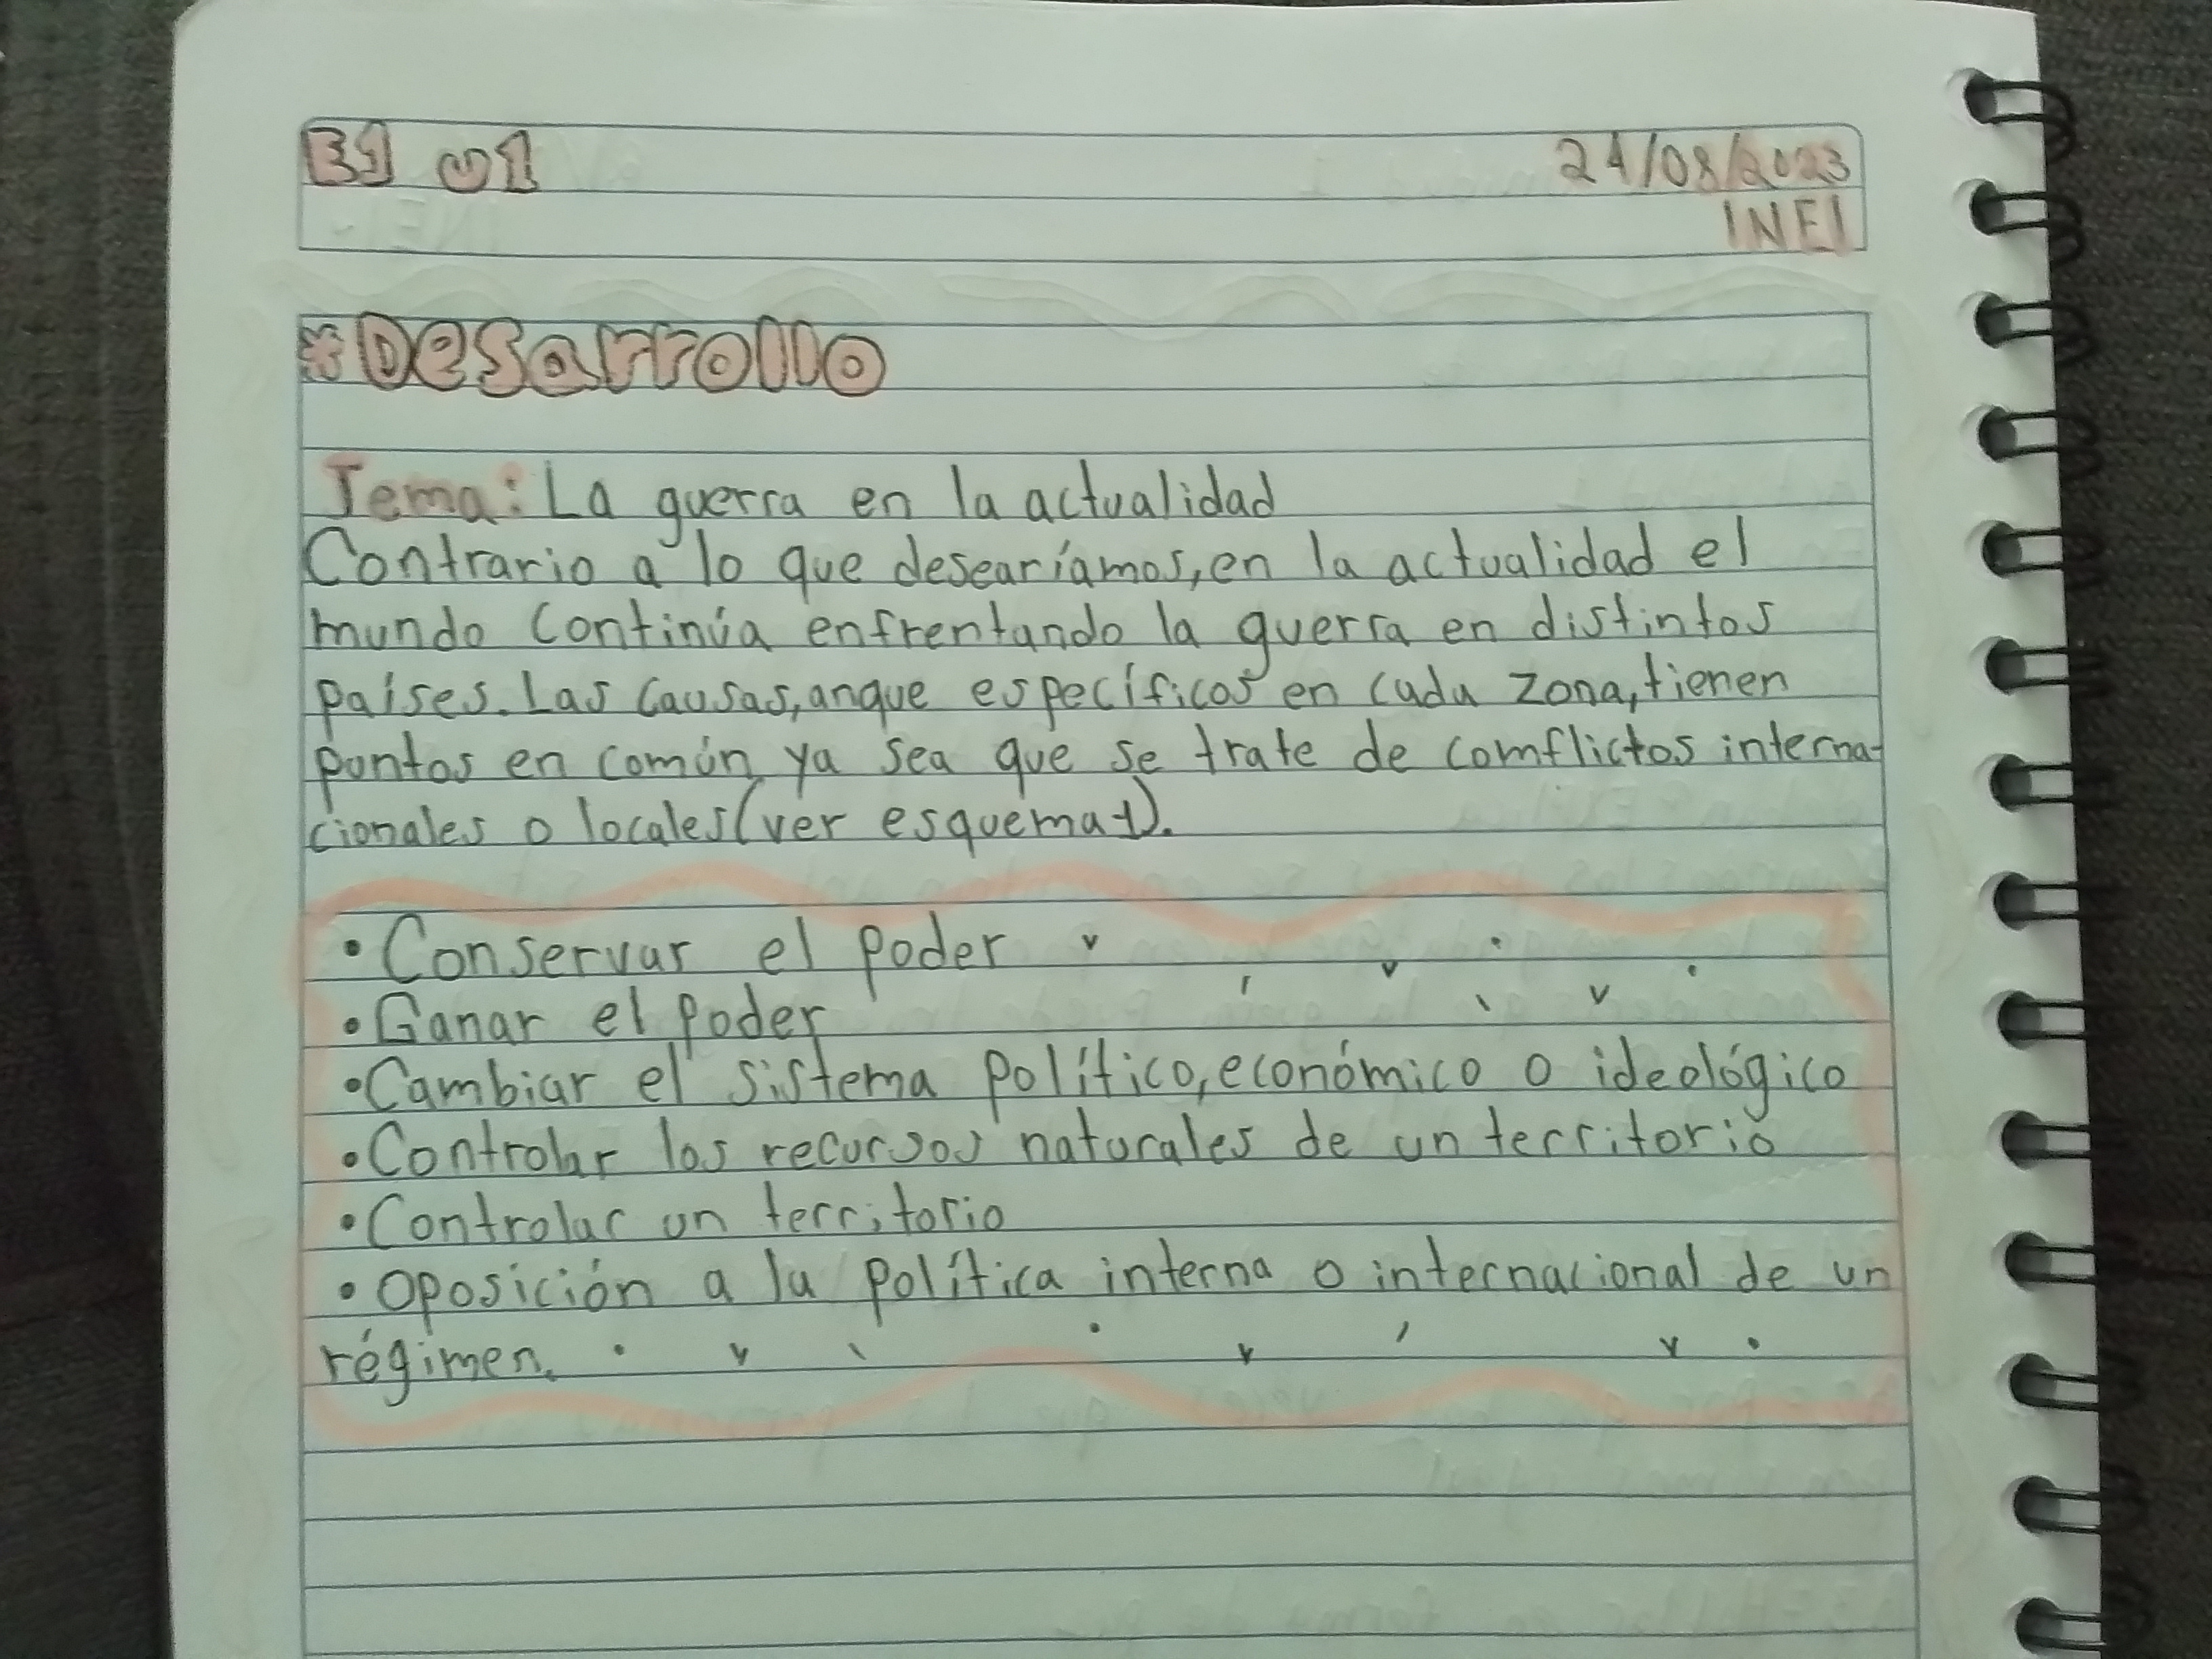 B1 U1 24/08/2023
INEI
*Desarrollo
Tema: La guerra en la actualidad
Contrario a lo que desearíamos, en la actualidad el
mundo continúa enfrentando la guerra en distintos
países. Las causas, anque específicos en cada zona, tienen
puntos en común ya sea que se trate de comflictos interna-
cionales o locales (ver esquema 1).
• Conservar el poder
• Ganar el poder
• Cambiar el sistema político, económico o ideológico
• Controlar los recursos naturales de un territorio
• Controlar un territorio
• Oposición a la política interna o internacional de un
régimen.